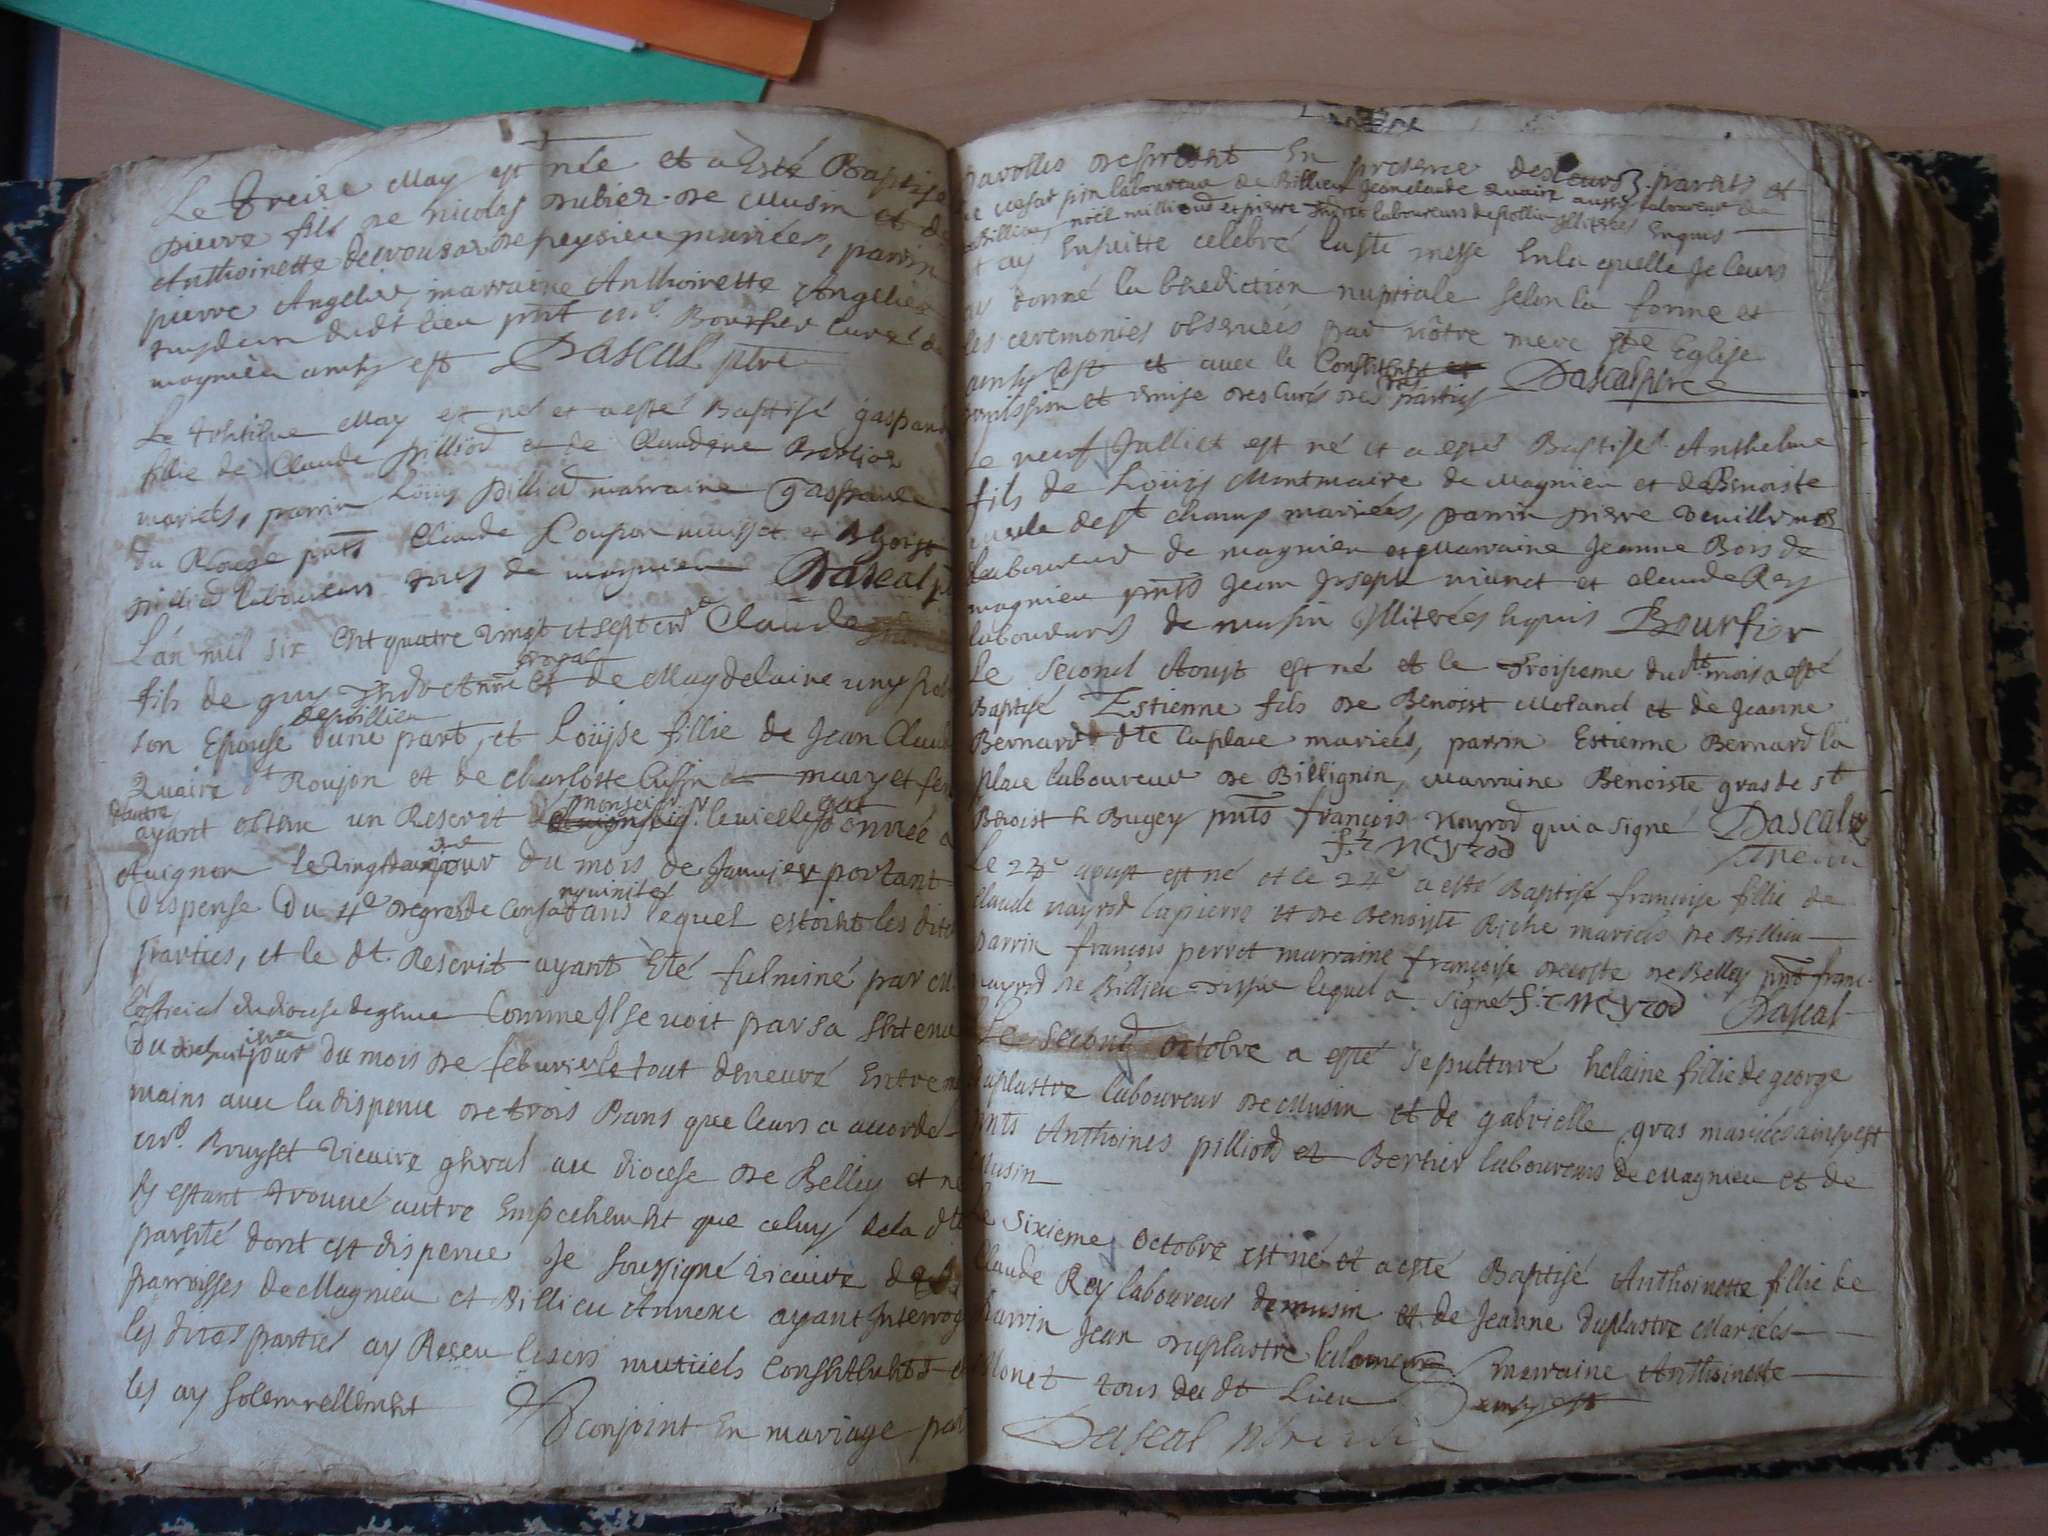 Le treise May est née et a Esté Baptisé
pierre fils de nicolas dubier de Musin et de
Anthoinette de peysieu mariées, parrin
pierre Angelier, marraine Anthoinette Angelier
dudt lieu pnt Mr. Bourfier curé de
magnieu ainsy est Pascal ptre
Le May est né et a esté Baptisé gaspard
fillie de Claude pilliod et de Claudine
mariées, parrin Loüys pillied marraine gasparde
du pnts Claude Coupon musset et Benoist
pilliod laboureurs tous de magnieu Pascal
L'an mil six cent quatre vingt et sept Claude
fils de guy et de Magdelaine
de pollieu
son Epouse d'une part, et Loüyse fillie de Jean Claude
Quaire dt Roujon et de Charlotte Cussin mary et fe
d'autre
ayant obtenu un Rescrit de monseigr. le vicelegat donnée a
Avignon le jour du mois de Janvier portant
Dispense du 4e degres de consanguinité dans lequel estoint les dites
parties, et le dt. Rescrit ayant Eté fulminé par M.
Comme Il se voit par sa sentence
du jour du mois de febvrier le tout demeuré Entre mes
mains avec la dispence de trois Bans que leurs a accordé
Mr. Bruyset Vicaire gneral au diocese de Belley et ne
sy estant trouvé autre Empechement que celuy de la dte
parenté dont est dispence Je soussigné vicaire des
parroisses de Magnieu et Billieu Annexe ayant Interrogé
les dites parties ay Reçeu leurs mutuels consentements et
les ay solemnellement
conjoint En mariage par
parolles de present En presence de leurs parents et
laboureur de Billieu Jean claude quaire aussy laboureur de
Billieu noel milliond et pierre laboureurs de pollieu Illiterés Enquis
et ay Ensuitte celebré la ste messe En la quelle Je leurs
ay donné la benediction nuptiale selon la forme et
les ceremonies observées par nôtre mere ste Eglise
ainsy est et avec le Consentement et
permission et remise des curés des parties Pascal ptre
Le neuf Julliet est né et a esté Baptisé Anthelme
fils de Loüys Montmaire de Magnieu et de Benoiste
de st champ mariées, parrin pierre
laboureur de magnieu et Marraine Jeanne Bois de
magnieu pnts Jean Joseph et claude Rey
laboureurs de musin Illiterées Enquis Bourfier
Le second Aoust est né et le troisieme dudt mois a esté
Baptisé Estienne fils de Benoist Moland et de Jeanne
Bernard dte la place mariées, parrin Estienne Bernard la
place laboureur de Billignin, Marraine Benoiste gras de st
Benoist En Bugey pnts françois Neyrod qui a signé Pascal
f. Neyrod
Le 23e aoust est né et le 24e a esté Baptisé françoise fillie de
Claude Nayrod lapierre et de Benoiste Riche mariés de Billieu
parrin françois perrot marraine françoise decoste de Belley pnt franc.
nayrod de Billieu lequel a signé f. Neyrod Pascal
Le second octobre a esté sepulturé helaine fillie de george
duplastre laboureur de Musin et de gabrielle gras mariées ainsy est
pnts Anthoines pilliod et Bertier laboureurs de Magnieu et de
Musin
Le sixieme octobre est né et a esté Baptisé Anthoinette fillie de
Claude Rey laboureur de musin et de Jeanne duplastre Mariées
parrin Jean duplastre marraine Anthoinette
Monet tous du dt Lieu ainsy est
Pascal